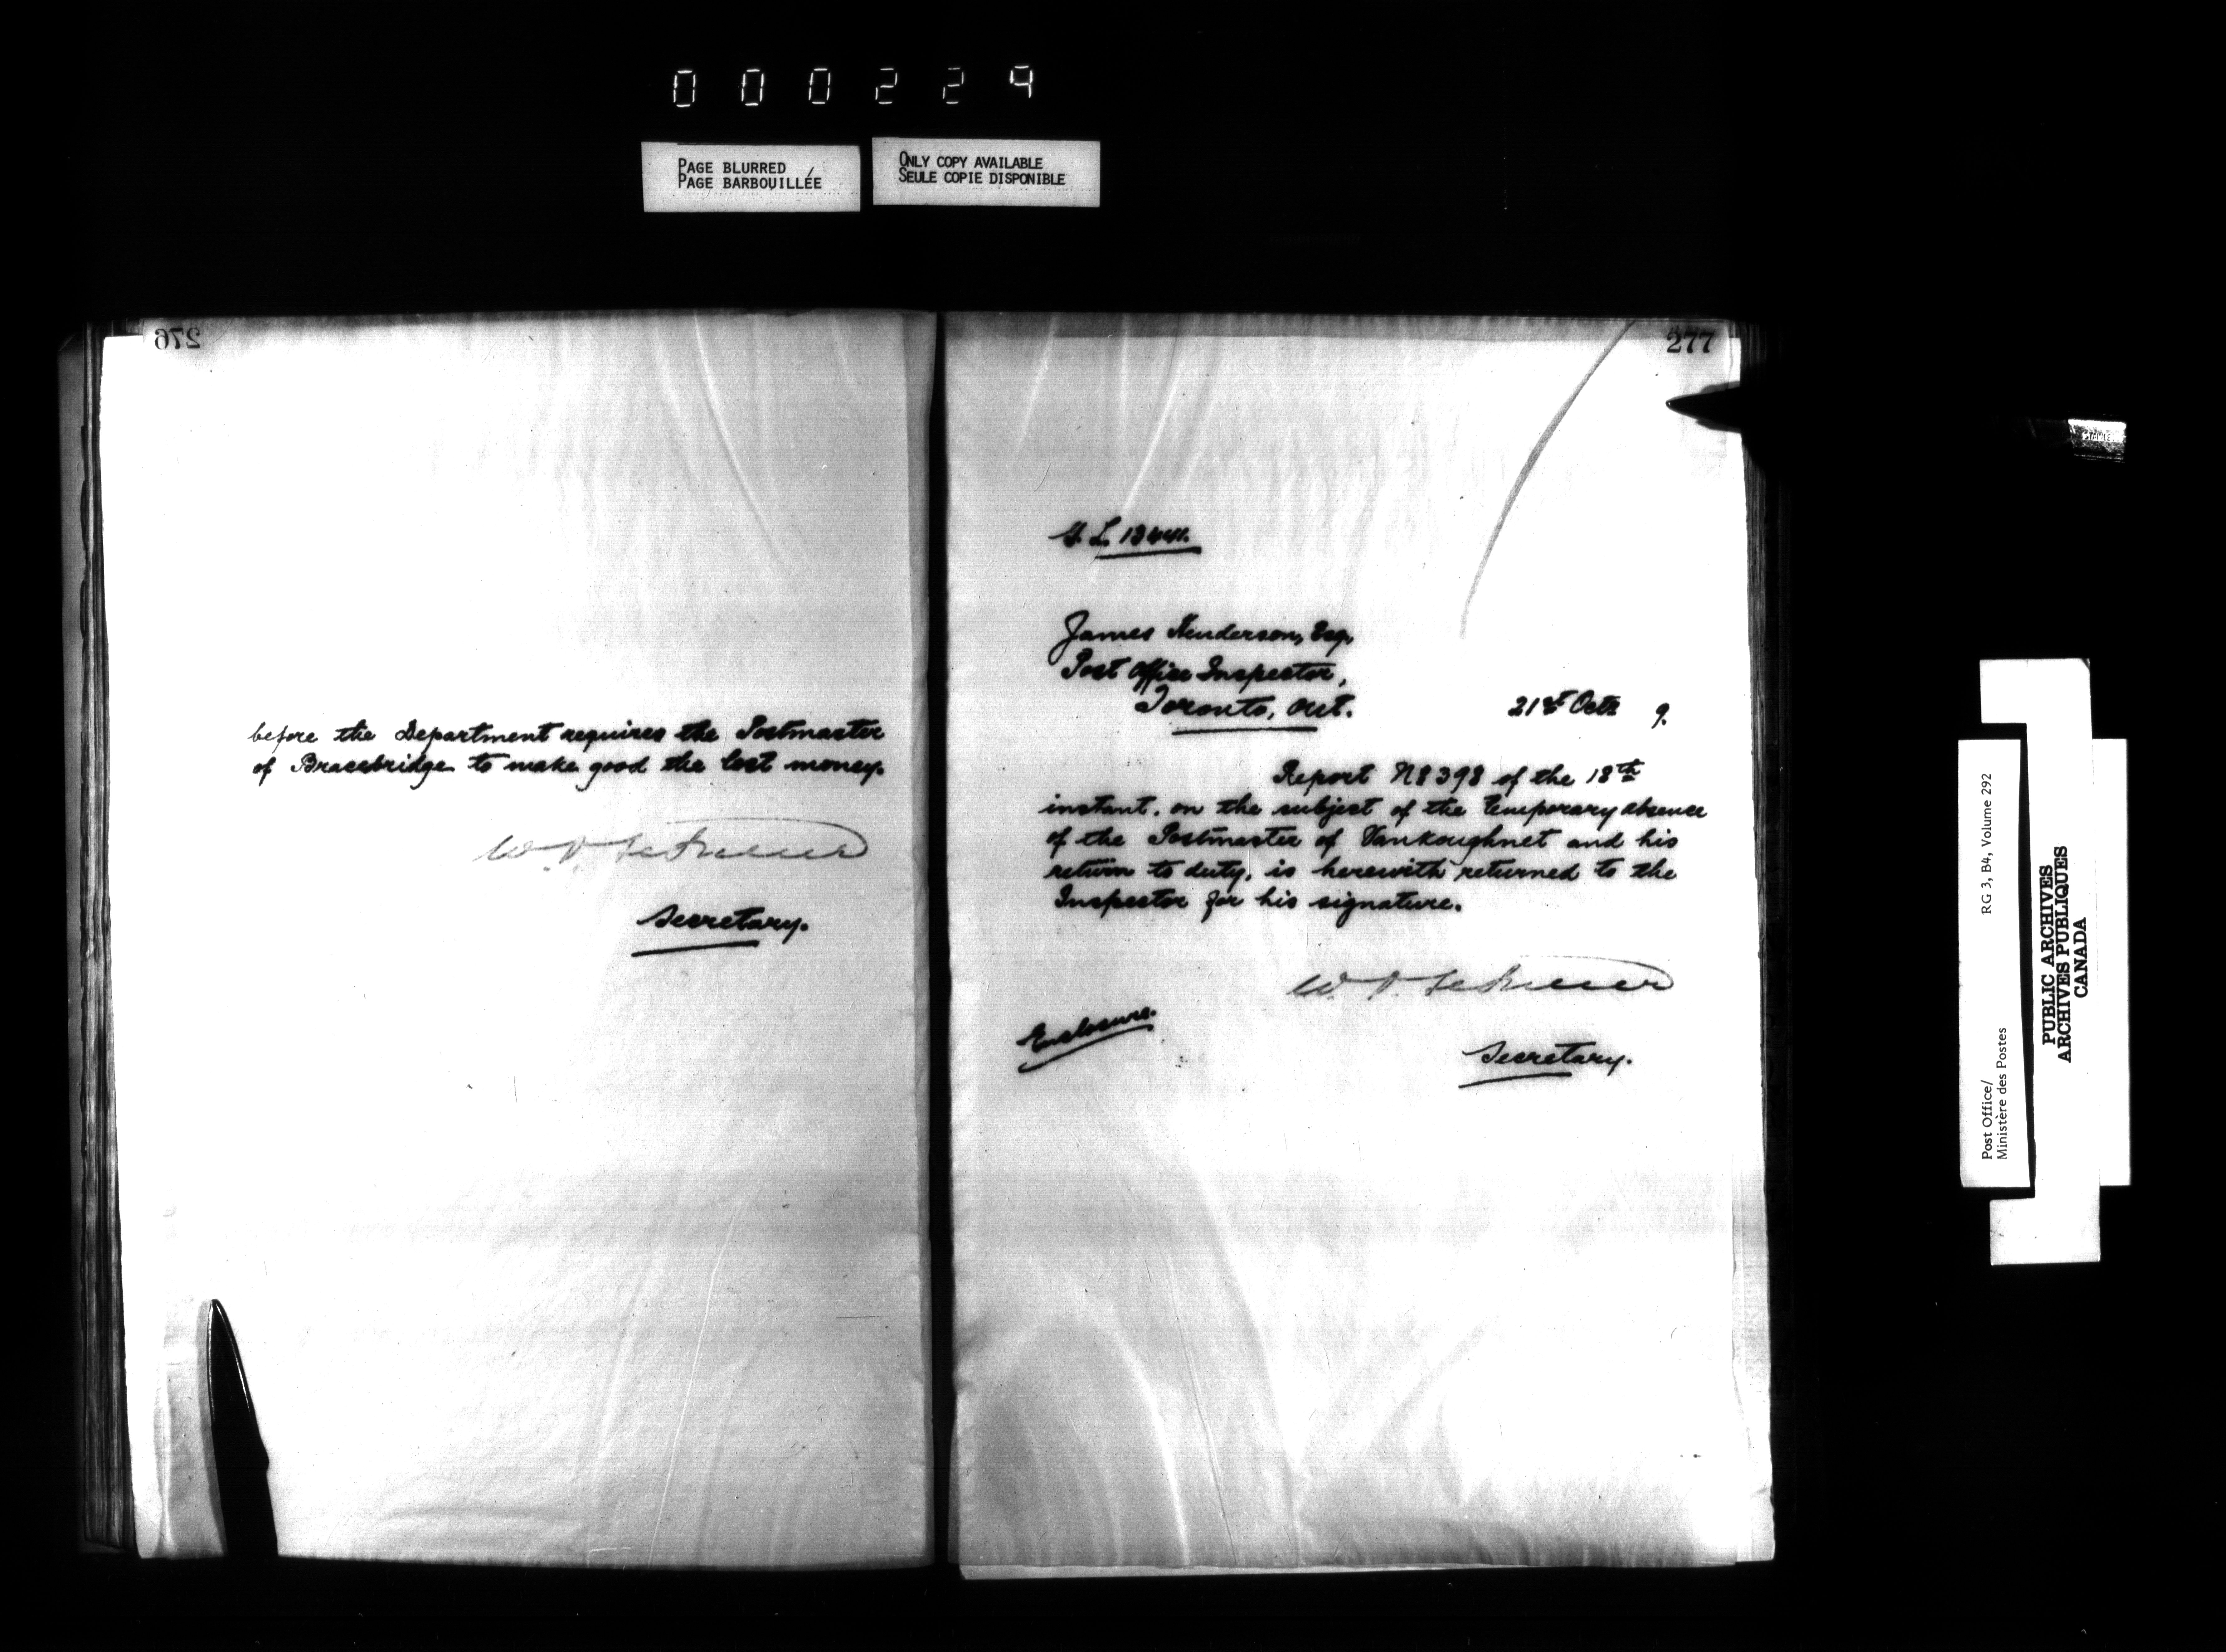 000229
PAGE BLURRED
PAGE BARBOUILLÉE
ONLY COPY AVAILABLE
SEULE COPIE DISPONIBLE
276
before the Department requires the Postmaster
of Bracebridge to make good the lost money.
Secretary.
277
James Henderson, Esq,
Post Office Inspector,
Toronto, Ont.
21st Octr 9.
Report N8398 of the 18th
instant, on the subject of the temporary absence
of the Postmaster of Vankoughnet and his
return to duty, is herewith returned to the
Inspector for his signature.
Enclosure.
Secretary.
Post Office/
Ministère des Postes
RG 3, B4, Volume 292
PUBLIC ARCHIVES
ARCHIVES PUBLIQUES
CANADA